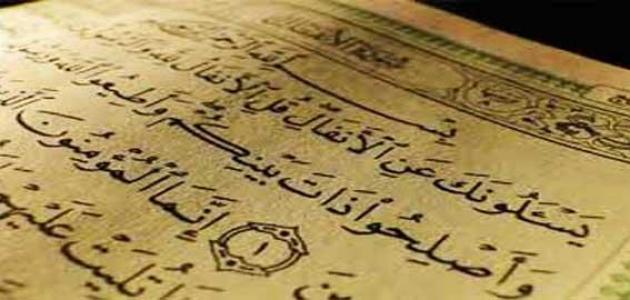 سورة الأنفال
بِسْمِ ٱللَّهِ ٱلرَّحْمَٰنِ ٱلرَّحِيمِ
يَسْـَٔلُونَكَ عَنِ ٱلْأَنفَالِ قُلِ ٱلْأَنفَالُ لِلَّهِ وَٱلرَّسُولِ
وَأَصْلِحُوا۟ ذَاتَ بَيْنِكُمْ وَأَطِيعُوا۟ ٱللَّهَ وَرَسُولَهُ
١ إِنَّمَا ٱلْمُؤْمِنُونَ ٱلَّذِينَ
تُلِيَتْ عَلَيْهِمْ